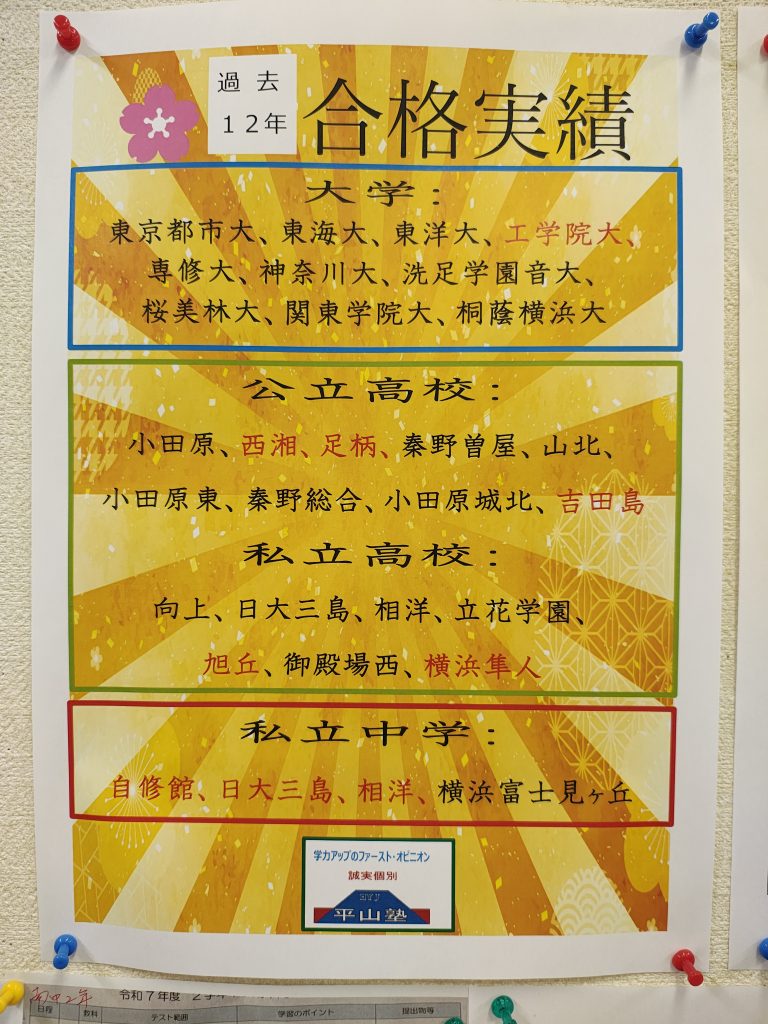 過去
12年
合格実績
大学：
東京都市大、東海大、東洋大、工学院大、
専修大、神奈川大、洗足学園音大、
桜美林大、関東学院大、桐蔭横浜大
公立高校：
小田原、西湘、足柄、秦野曽屋、山北、
小田原東、秦野総合、小田原城北、吉田島
私立高校：
向上、日大三島、相洋、立花学園、
旭丘、御殿場西、横浜隼人
私立中学：
自修館、日大三島、相洋、横浜富士見ヶ丘
学力アップのファースト・オピニオン
誠実個別
HYJ
平山塾
令和７年度
日程 教科 テスト範囲 学習のポイント 提出物等